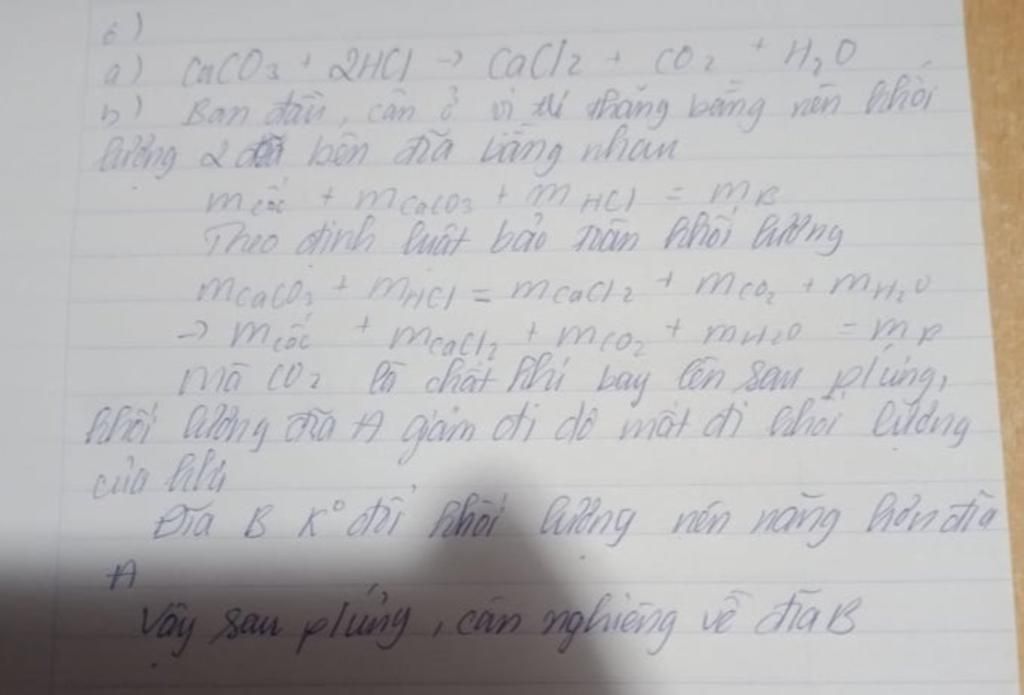 6)
a) CaCO3 + 2HCl → CaCl2 + CO2 + H2O
b) Ban đầu, cân ở vị trí thăng bằng nên khối
lượng 2 bên đĩa bằng nhau
m cốc + m CaCO3 + m HCl = m B
Theo định luật bảo toàn khối lượng
m CaCO3 + m HCl = m CaCl2 + m CO2 + m H2O
→ m cốc + m CaCl2 + m CO2 + m H2O = m B
mà CO2 là chất khí bay lên sau p/ứng,
khối lượng đĩa A giảm đi do mất đi khối lượng
của khí
Đĩa B K° đổi khối lượng nên nặng hơn đĩa
A
Vậy sau p/ứng, cân nghiêng về đĩa B